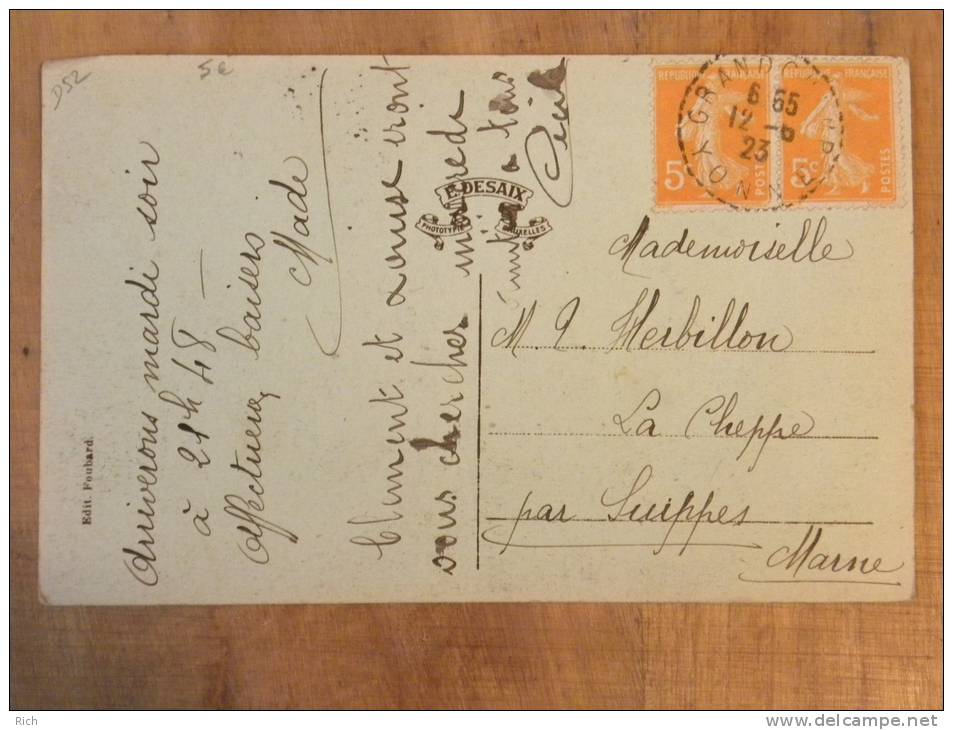 D52
5e
Arriverons mardi soir
à 21h 48 —
Affectueux baisers
Made
Clément et Louise iront
vous chercher mercredi
à tous
Cécile
Edit. Foubard.
E. DESAIX
PHOTOTYPIE BRUXELLES
REPUBLIQUE FRANÇAISE
5c
POSTES
REPUBLIQUE FRANÇAISE
5c
POSTES
6 55
12 - 6
23
Mademoiselle
M. L. Herbillon
La Cheppe
par Suippes
Marne
Rich
www.delcampe.net